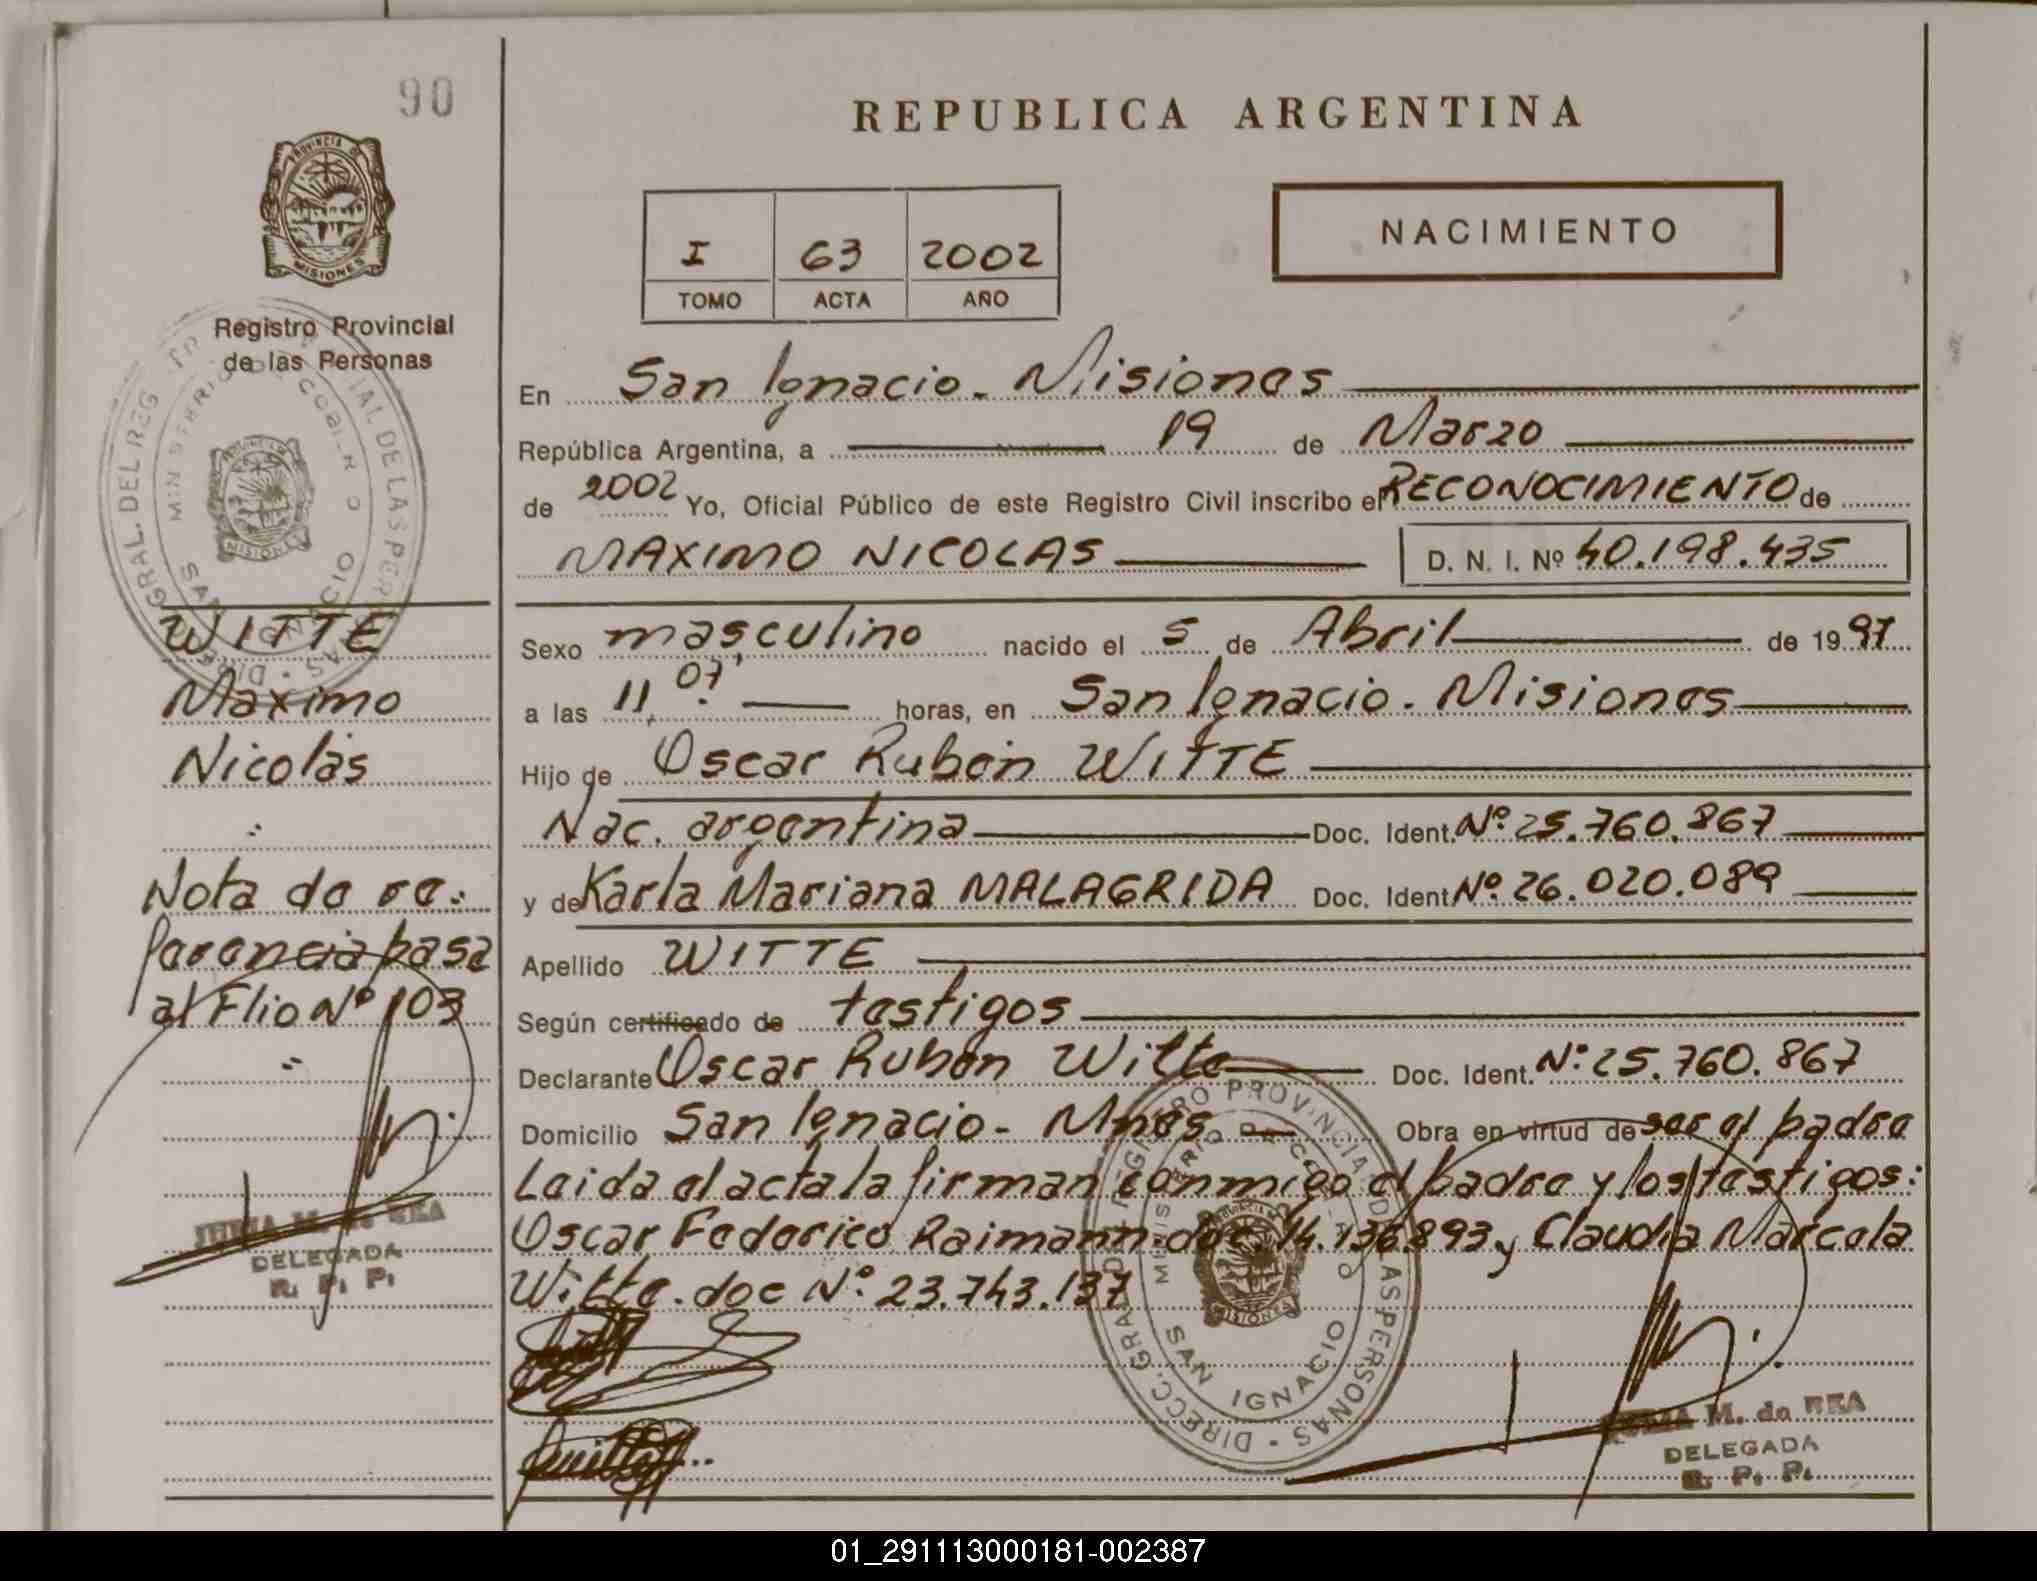 90
PROVINCIA DE
MISIONES
Registro Provincial
de las Personas
WITTE
Maximo
Nicolás
Nota de re-
ferencia pasa
al Flio Nº 103
M. de REA
DELEGADA
R. P. P.
REPUBLICA ARGENTINA
I 63 2002
TOMO ACTA AÑO
NACIMIENTO
En San Ignacio - Misiones
República Argentina, a 19 de Marzo
de 2002 Yo, Oficial Público de este Registro Civil inscribo el RECONOCIMIENTO de
MAXIMO NICOLAS D. N. I. Nº 40.198.435
Sexo masculino nacido el 5 de Abril de 1997
a las 11,07 horas, en San Ignacio - Misiones
Hijo de Oscar Rubén WITTE
Nac. argentina Doc. Ident. Nº 25.760.867
y de Karla Mariana MALAGRIDA Doc. Ident. Nº 26.020.089
Apellido WITTE
Según certificado de testigos
Declarante Oscar Rubén Witte Doc. Ident. Nº 25.760.867
Domicilio San Ignacio - Mnes Obra en virtud de ser el padre
Leida el acta la firman conmigo el padre y los testigos:
Oscar Federico Raimann doc. 14.136.893 y Claudia Marcela
Witte. doc Nº 23.743.137
DIRECC. GRAL. DEL REGISTRO PROVINCIAL DE LAS PERSONAS
MINISTERIO DE GOBIERNO
SAN IGNACIO
M. de REA
DELEGADA
R. P. P.
01_291113000181-002387